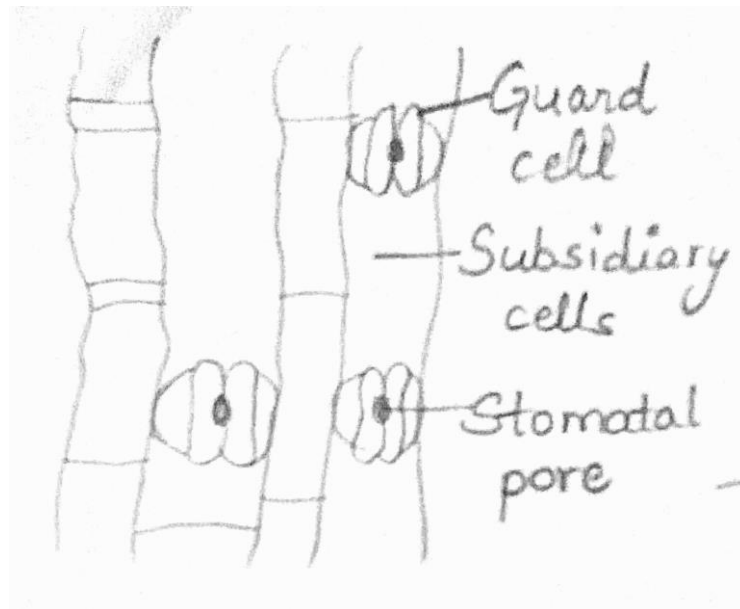 Guard
cell
Subsidiary
cells
Stomatal
pore